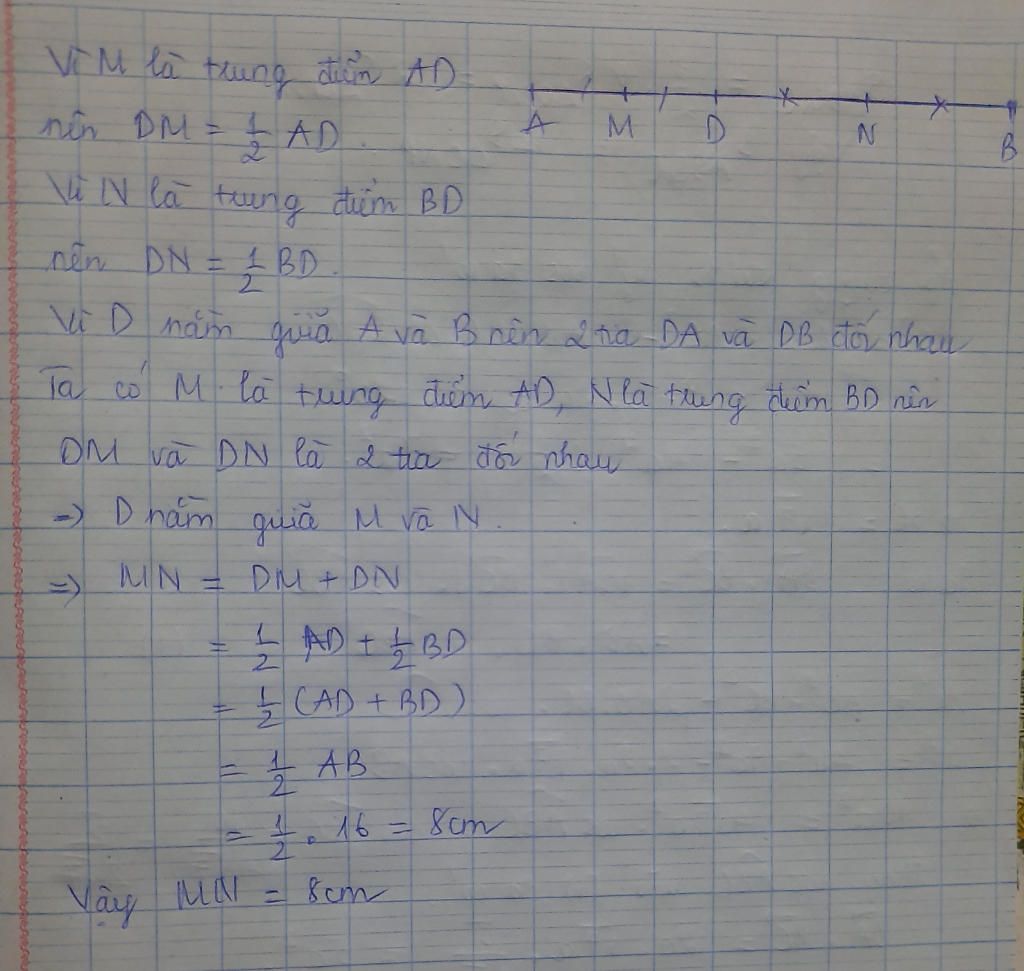 Vì M là trung điểm AD
nên DM = 1/2 AD.
Vì N là trung điểm BD
nên DN = 1/2 BD.
Vì D nằm giữa A và B nên 2 tia DA và DB đối nhau
Ta có M là trung điểm AD, N là trung điểm BD nên
DM và DN là 2 tia đối nhau
=> D nằm giữa M và N.
=> MN = DM + DN
= 1/2 AD + 1/2 BD
= 1/2 (AD + BD)
= 1/2 AB
= 1/2 . 16 = 8cm
Vậy MN = 8cm
A M D N B